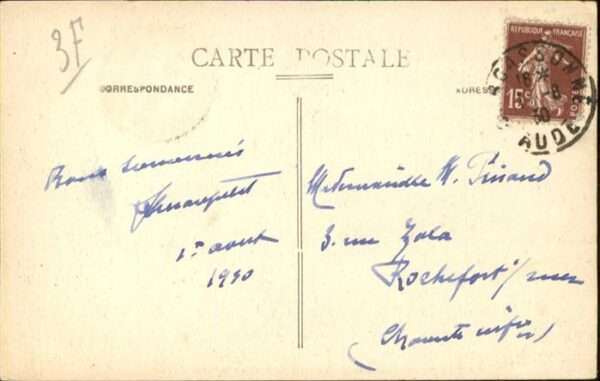 3F
CARTE POSTALE
CORRESPONDANCE
ADRESSE
REPUBLIQUE FRANÇAISE
15c
POSTES
CARCASSONNE
AUDE
Bons souvenirs
1er août
1930
Mademoiselle M. Pinaud
3. rue Zola
Rochefort s/mer
Charente infre